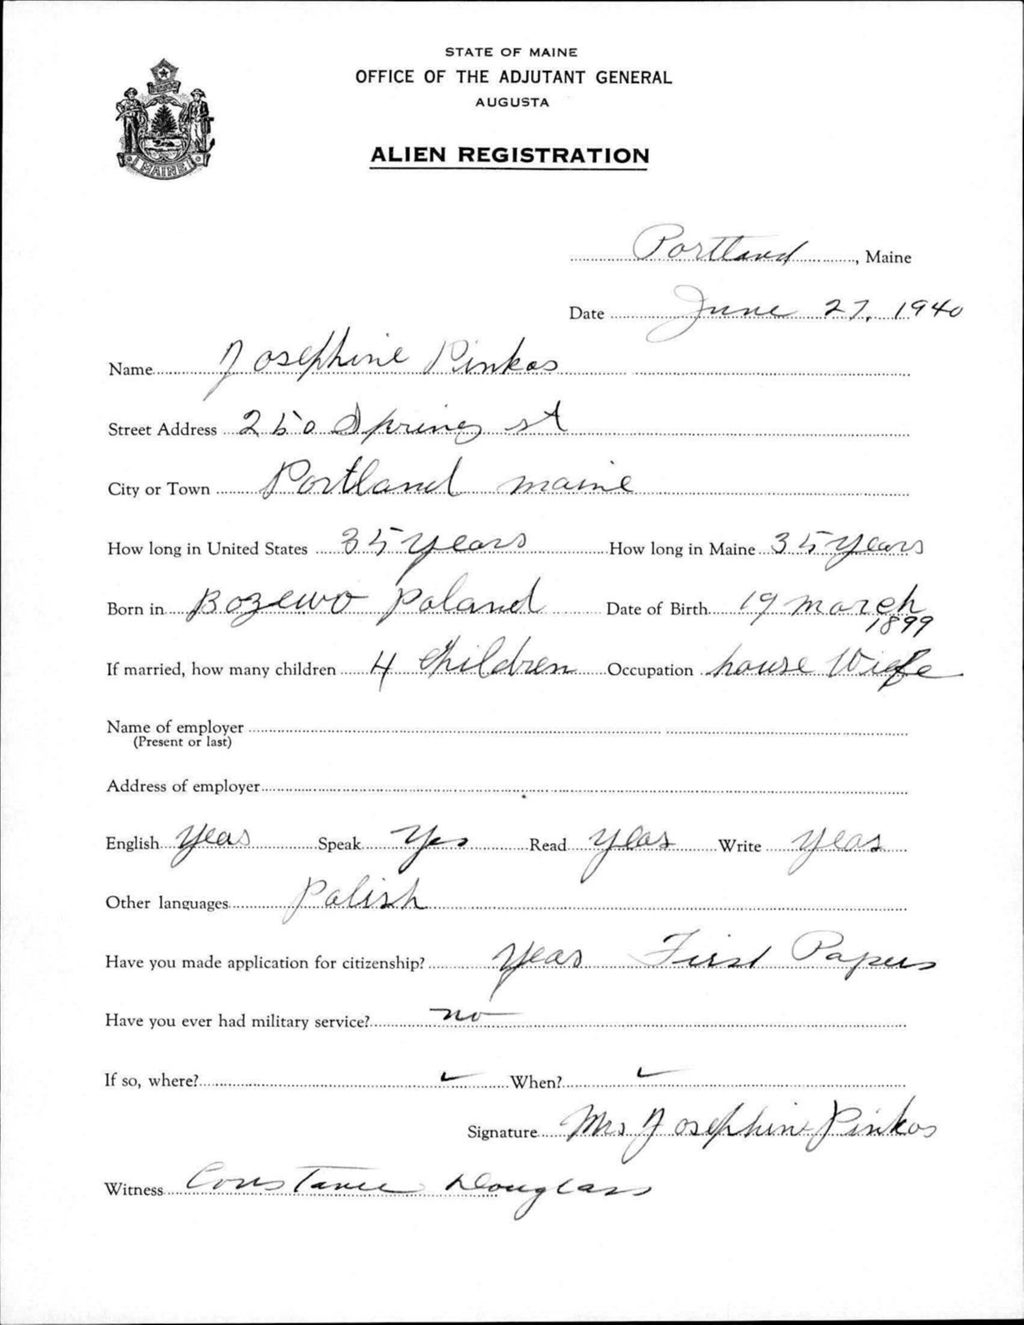 STATE OF MAINE
OFFICE OF THE ADJUTANT GENERAL
AUGUSTA
MAINE
ALIEN REGISTRATION
Portland, Maine
Date June 27, 1940
Name Josephine Pinkos
Street Address 250 Spring st
City or Town Portland maine
How long in United States 35 years How long in Maine 35 years
Born in Bozewo Poland Date of Birth 19 march
1899
If married, how many children 4 Children Occupation house Wife
Name of employer
(Present or last)
Address of employer
English yeas Speak Yes Read yeas Write yeas
Other languages Polish
Have you made application for citizenship? yeas First Papers
Have you ever had military service? no
If so, where? ✓ When? ✓
Signature Mrs Josephine Pinkos
Witness Constance Douglass